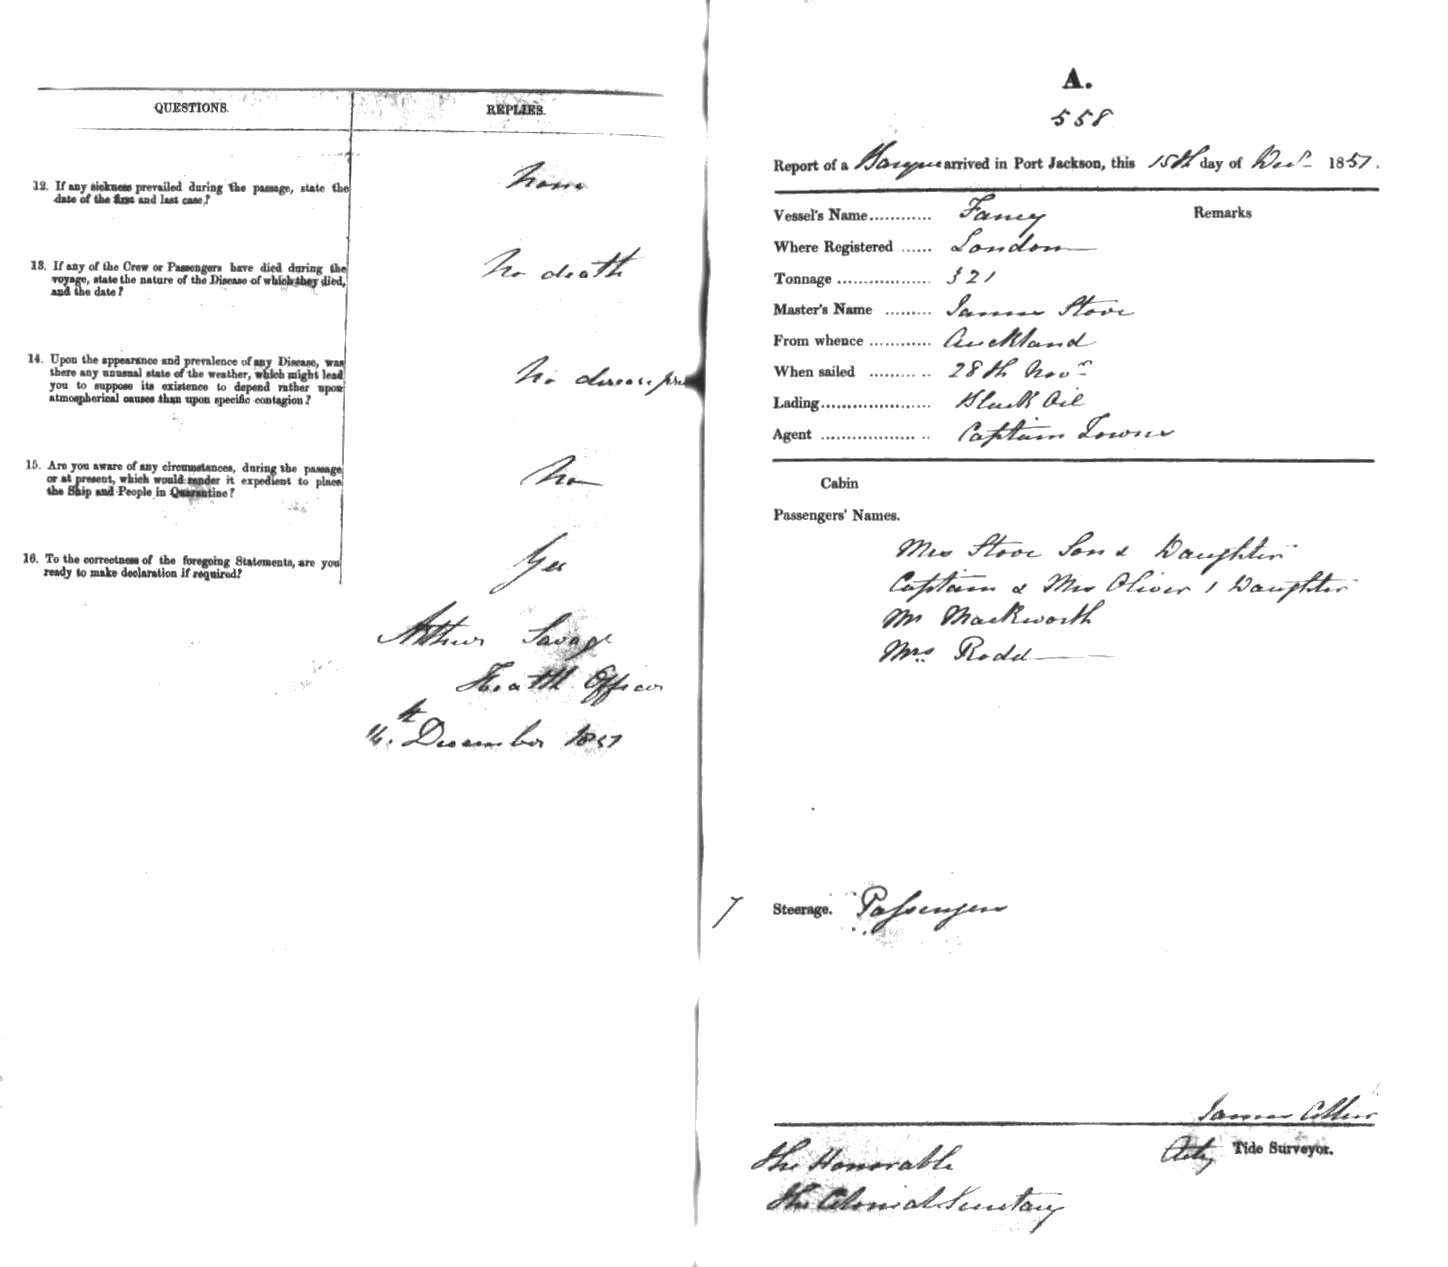 QUESTIONS.
REPLIES.
12. If any sickness prevailed during the passage, state the
date of the first and last case?
None
13. If any of the Crew or Passengers have died during the
voyage, state the nature of the Disease of which they died,
and the date?
No death
14. Upon the appearance and prevalence of any Disease, was
there any unusual state of the weather, which might lead
you to suppose its existence to depend rather upon
atmospherical causes than upon specific contagion?
No disease
15. Are you aware of any circumstances, during the passage
or at present, which would render it expedient to place
the Ship and People in Quarantine?
No
16. To the correctness of the foregoing Statements, are you
ready to make declaration if required?
Yes
Arthur Savage
Health Officer
16th December 1857
A.
558
Report of a Barque arrived in Port Jackson, this 15th day of Decr 1857.
Vessel's Name............ Fancy
Remarks
Where Registered ...... London
Tonnage .................. 321
Master's Name ......... James Stove
From whence ............ Auckland
When sailed ......... .. 28th Novr
Lading...................... Black Oil
Agent .................. .. Captain Towns
Cabin
Passengers' Names.
Mrs Stove Son & Daughter
Captain & Mrs Oliver 1 Daughter
Mr Mackworth
Mrs Rodd
7 Steerage. Passengers
James
Actg Tide Surveyor.
The Honorable
The Colonial Secretary